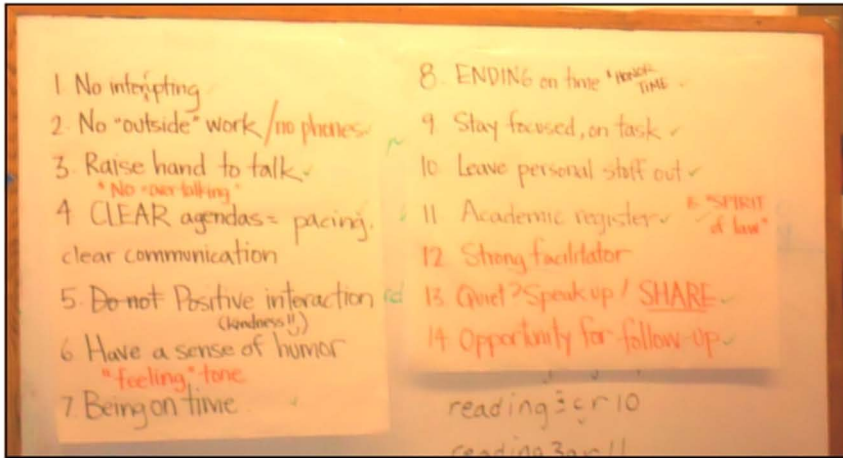 1 No interipting
2. No "outside" work/no phones
3. Raise hand to talk
"No overtalking"
4 CLEAR agendas = pacing,
clear communication
5. Do not Positive interaction
(kindness!!)
6 Have a sense of humor
"feeling" tone
7. Being on time
8. ENDING on time "HONOR
TIME
9 Stay focused, on task
10 Leave personal stuff out
11 Academic register "SPIRIT
of law"
12 Strong facilitator
13 Quiet? Speak up! SHARE
14 Opportunity for follow-up
reading
reading